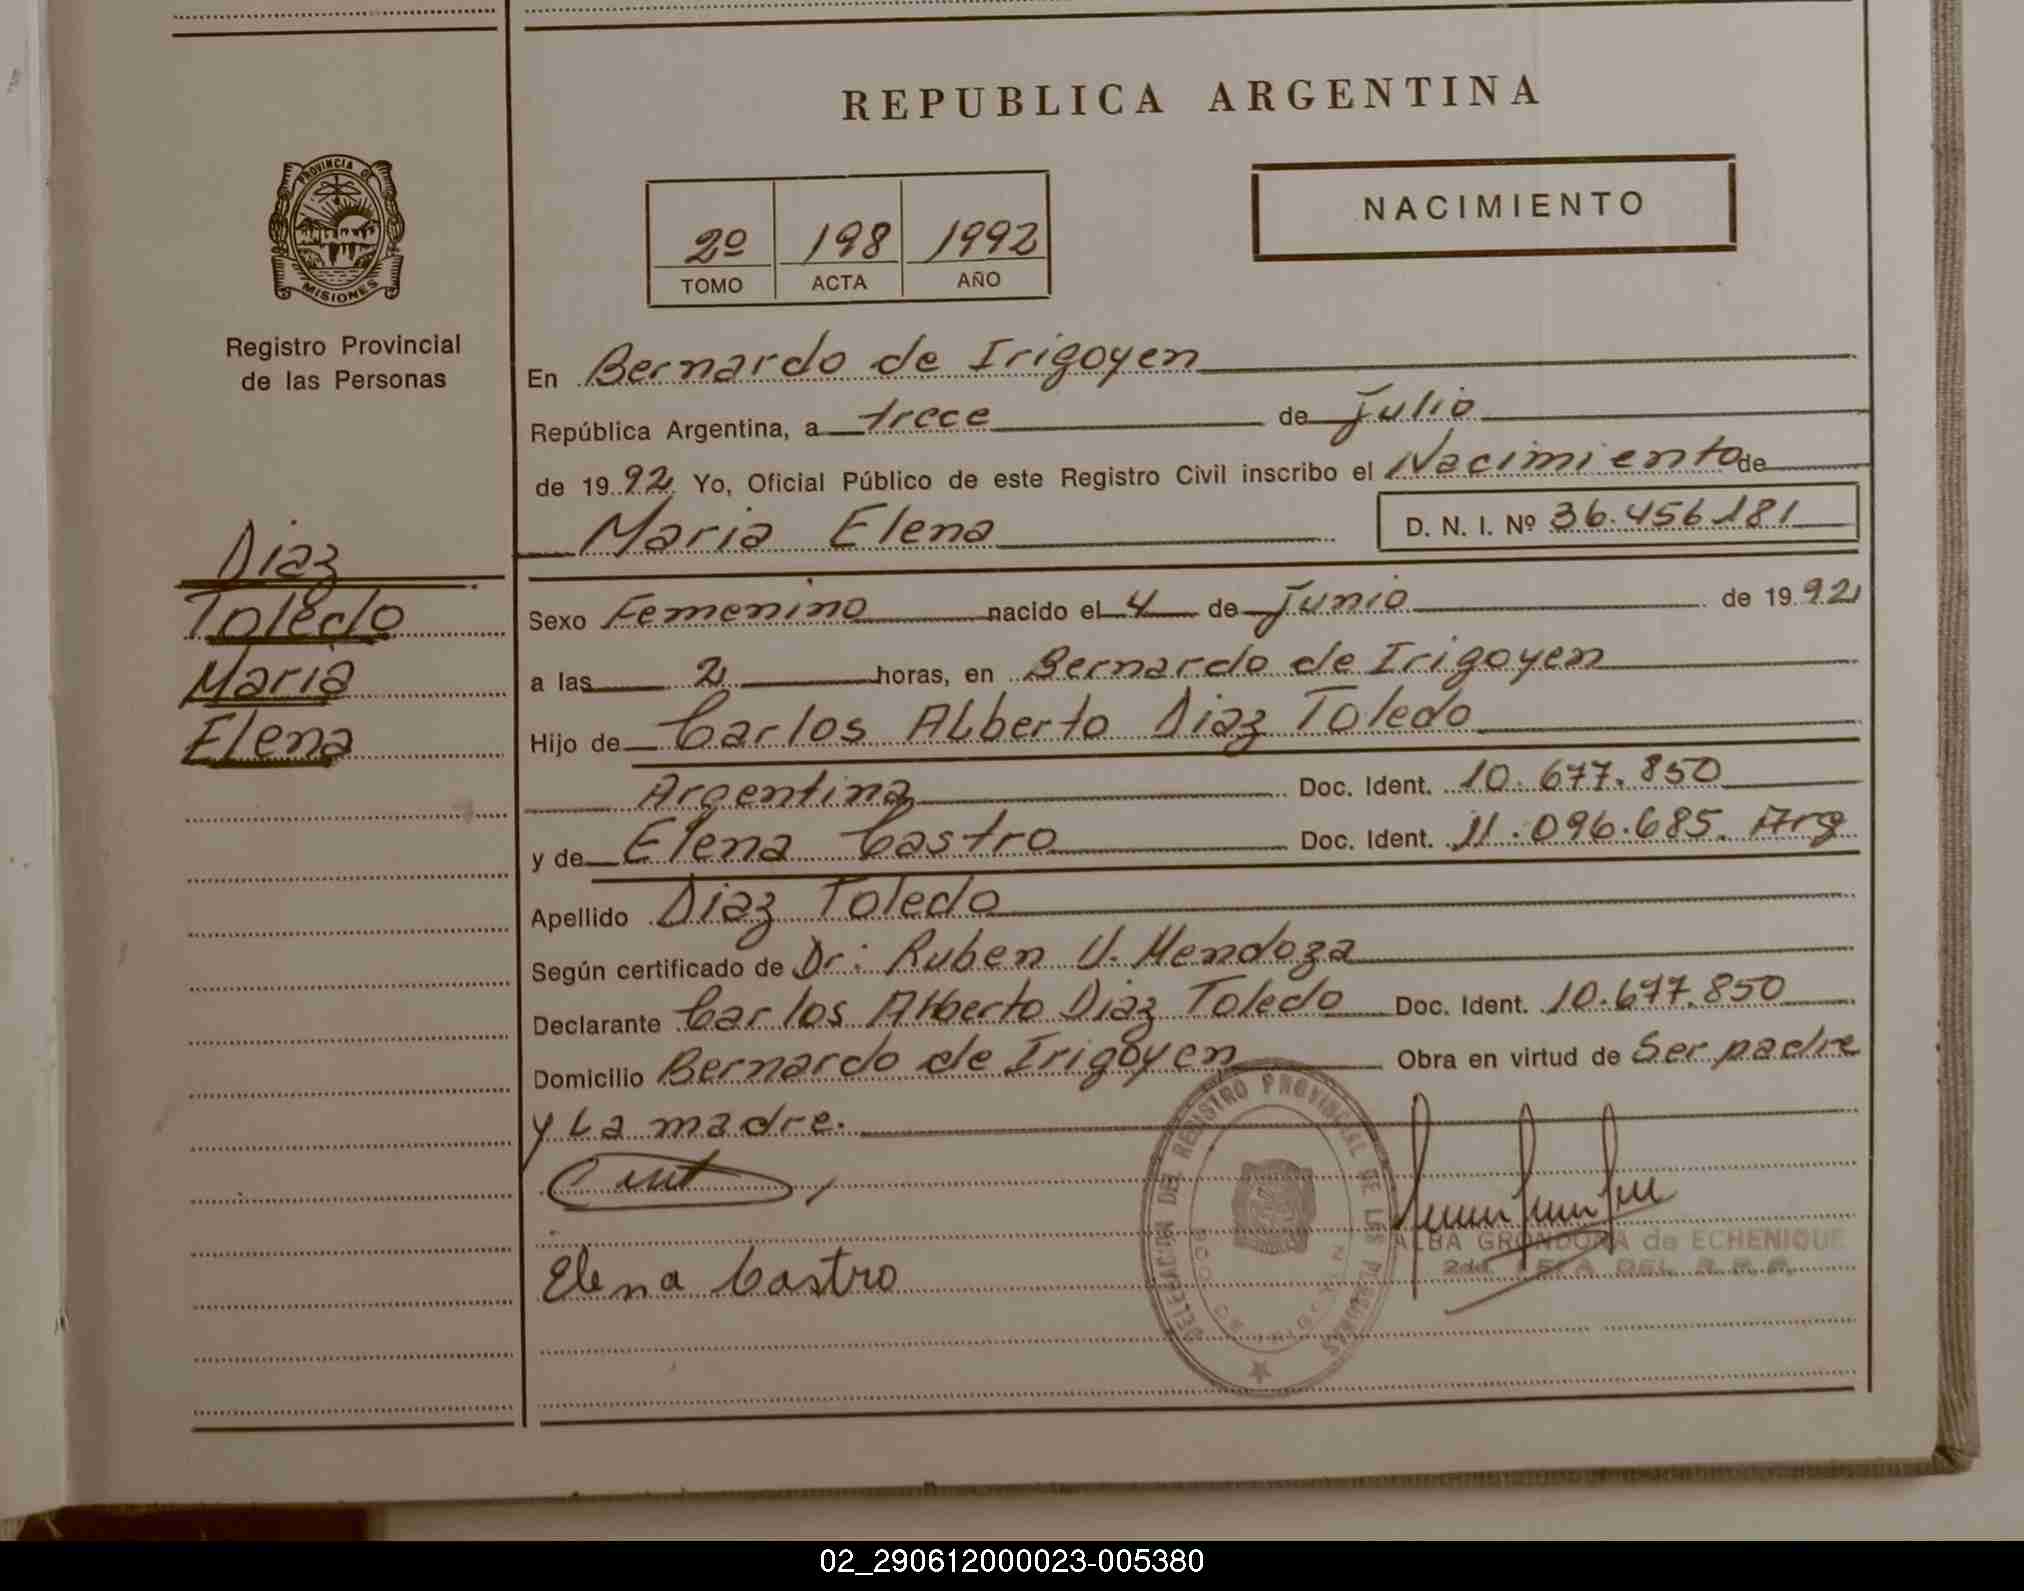 REPUBLICA ARGENTINA
NACIMIENTO
2º 198 1992
TOMO ACTA AÑO
PROVINCIA DE
MISIONES
Registro Provincial
de las Personas
Diaz
Toledo
Maria
Elena
En Bernardo de Irigoyen
República Argentina, a trece de Julio
de 1992 Yo, Oficial Público de este Registro Civil inscribo el Nacimiento de
Maria Elena D. N. I. Nº 36.456.181
Sexo Femenino nacido el 4 de Junio de 1992
a las 2 horas, en Bernardo de Irigoyen
Hijo de Carlos Alberto Diaz Toledo
Argentina Doc. Ident. 10.677.850
y de Elena Castro Doc. Ident. 11.096.685. Arg
Apellido Diaz Toledo
Según certificado de Dr: Ruben V. Mendoza
Declarante Carlos Alberto Diaz Toledo Doc. Ident. 10.677.850
Domicilio Bernardo de Irigoyen Obra en virtud de Ser padre
y La madre.
DELEGACION DEL REGISTRO PROVINCIAL DE LAS PERSONAS
BDO DE IRIGOYEN
ALBA GRONDONA de ECHENIQUE
2da JEFA DEL R. P. P.
Elena Castro
02_290612000023-005380